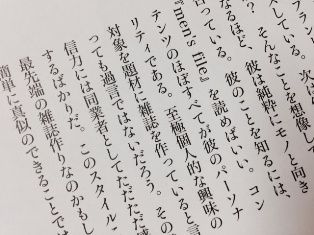 フラン
スしている。次は
？　そんなことを想像し
なるほど、彼は純粋にモノと向き
合っている。彼のことを知るには、
『men's file』を読めばいい。コン
テンツのほぼすべてが彼のパーソナ
リティである。至極個人的な興味の
対象を題材に雑誌を作っていると言
っても過言ではないだろう。その
信力には同業者としてただただ
するばかりだ。このスタイルこ
最先端の雑誌作りなのかもし
簡単に真似のできることで